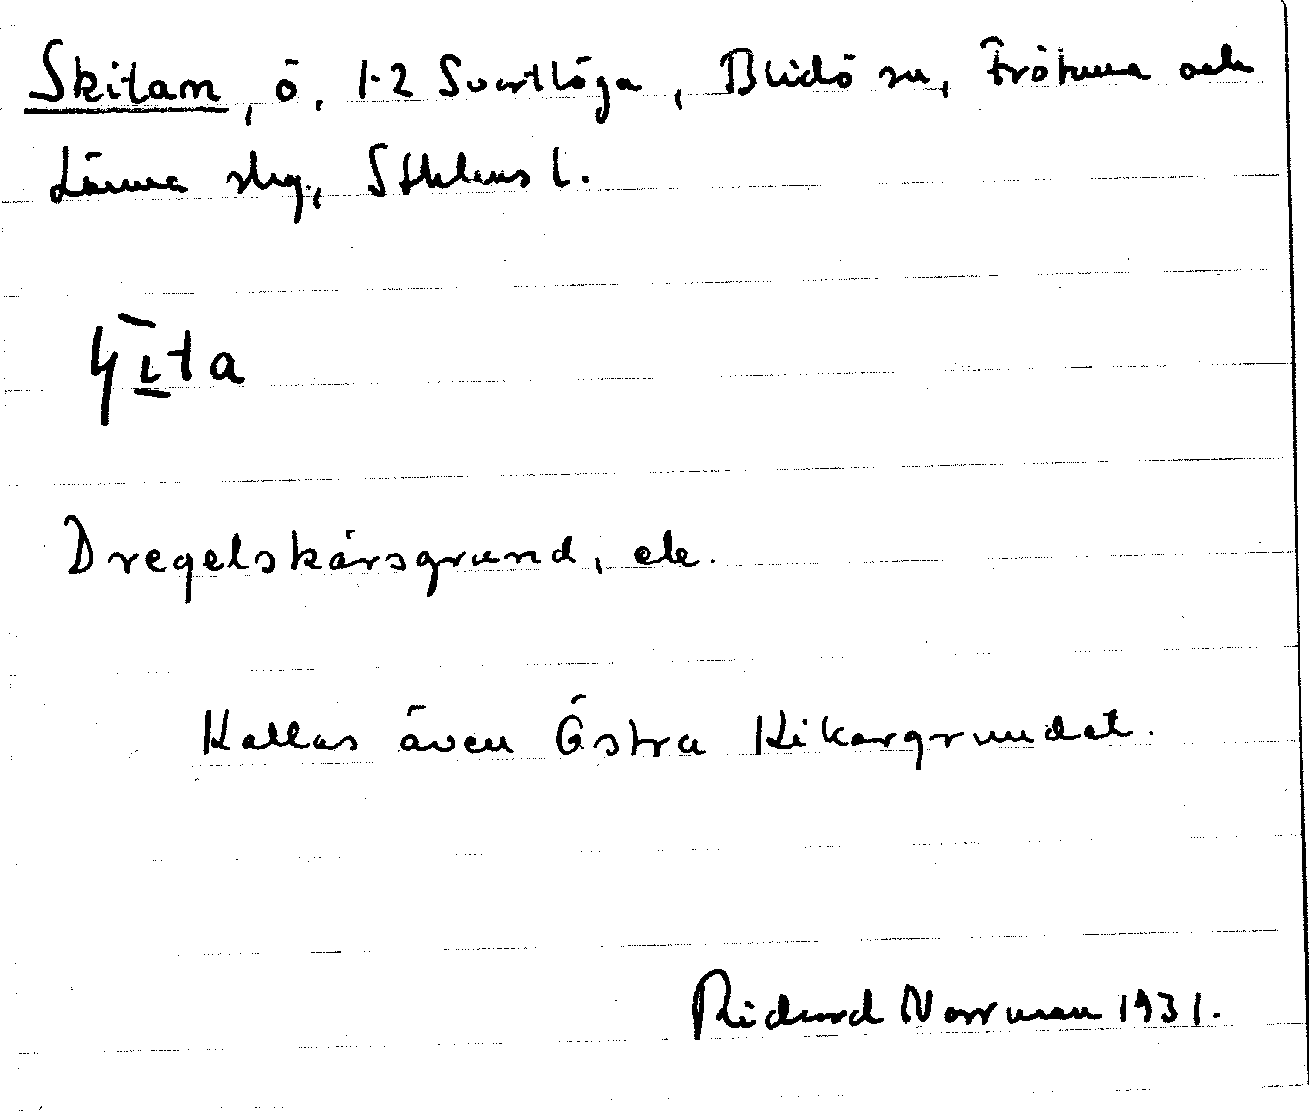 Skitan, ö, 1-2 Svartlöga, Blidö sn, Frötuna och
Länna skg, Sthlms l.
Dregelskärsgrund, ek.
Kallas även Östra Kikargrundet.
Richard Norrman 1931.